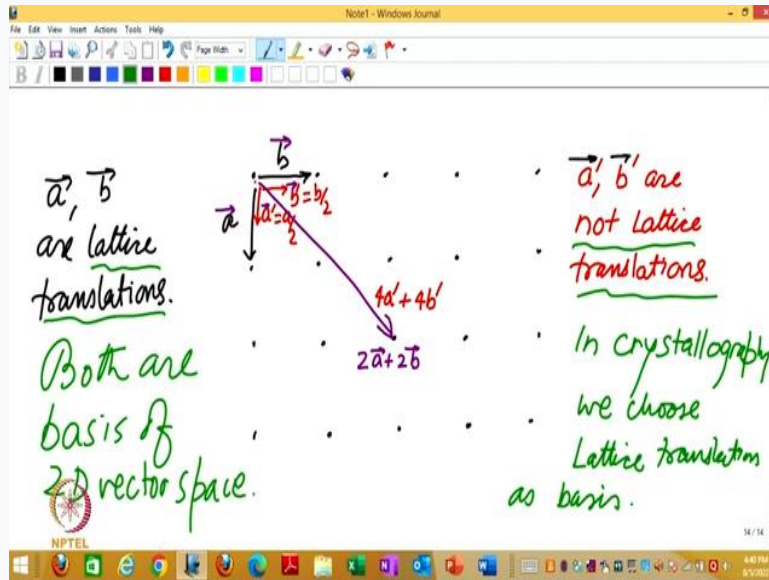 Note1 - Windows Journal
File Edit View Insert Actions Tools Help
Page Width
B I
a⃗, b⃗
are lattice
translations.
Both are
basis of
2D vector space.
b⃗
a⃗
b⃗'=b/2
a⃗'=a/2
4a'+4b'
2a⃗+2b⃗
a⃗', b⃗' are
not Lattice
translations.
In crystallography
we choose
Lattice translation
as basis.
NPTEL
14 / 14
4:40 PM